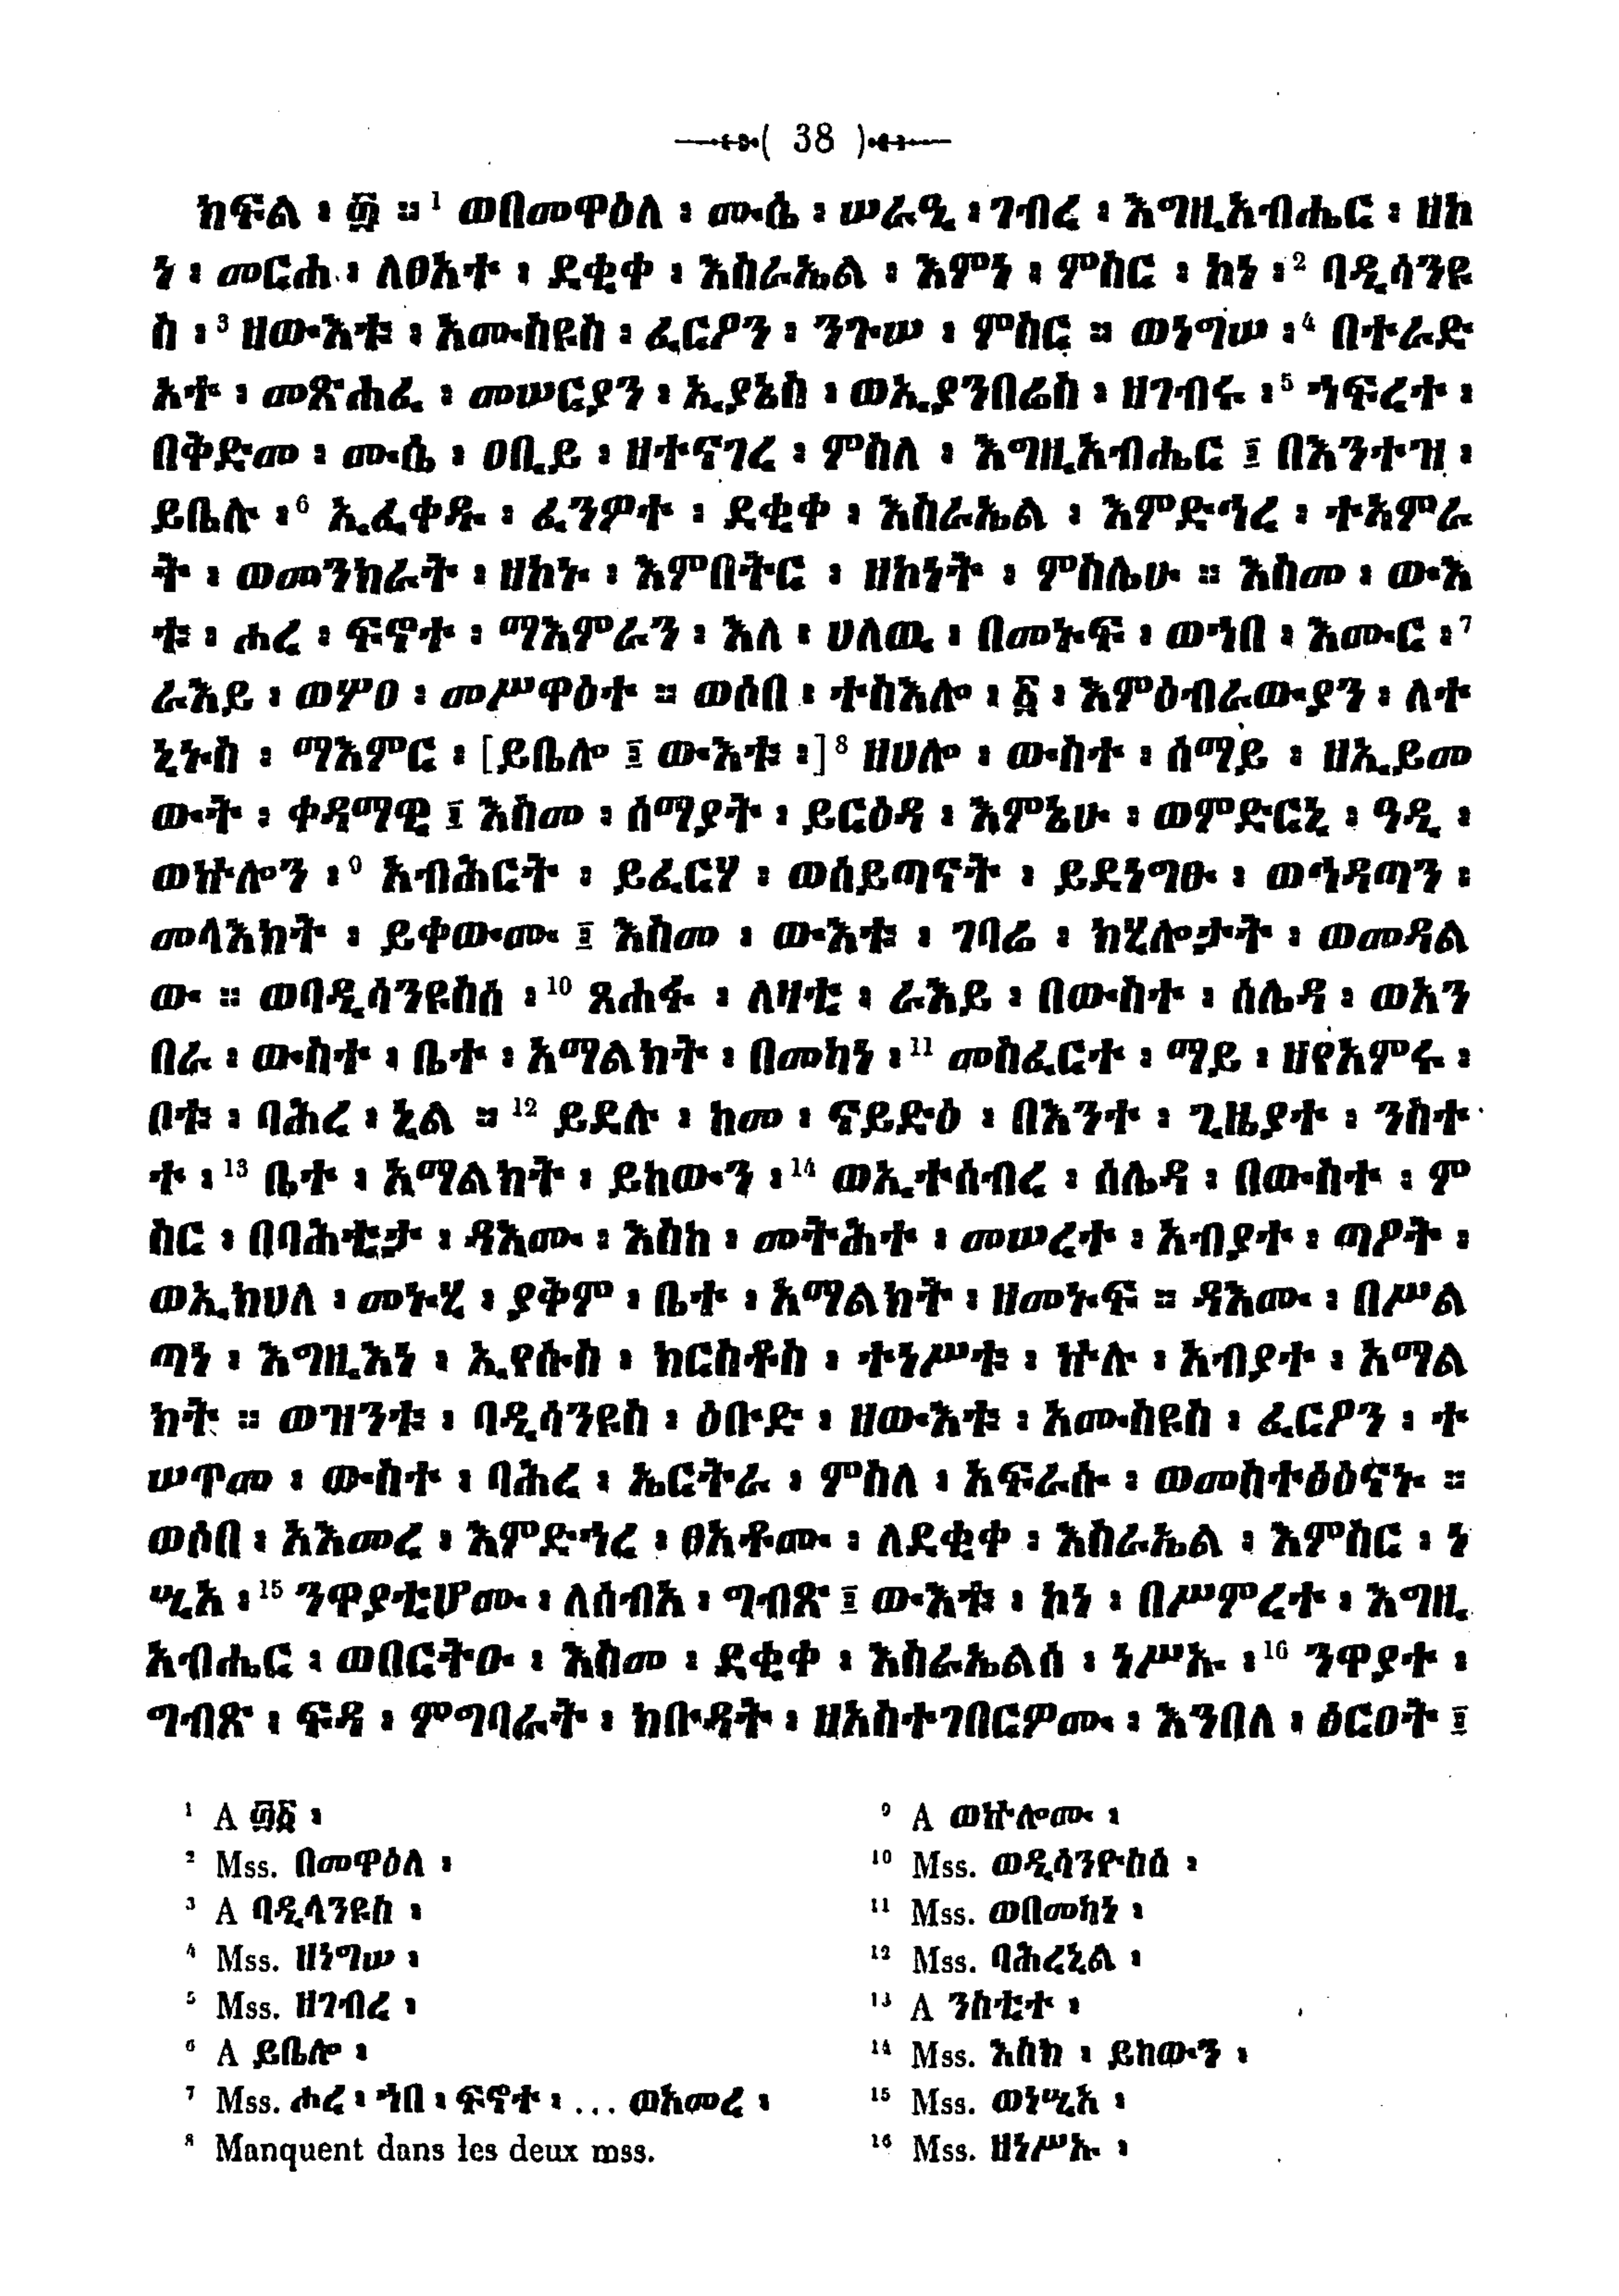 ( 38 )
ክፍል ፡ ፴ ።¹ ወበመዋዕለ ፡ ሙሴ ፡ ሠራዒ ፡ ገብረ ፡ እግዚአብሔር ፡ ዘከ
ነ ፡ መርሐ ፡ ለፀአተ ፡ ደቂቀ ፡ እስራኤል ፡ እምነ ፡ ምስር ፡ ከነ ፡² ባዲሳንዩ
ስ ፡³ ዘውእቱ ፡ አሙስዩስ ፡ ፈርዖን ፡ ንጉሠ ፡ ምስር ። ወነግሠ ፡⁴ በተራድ
አተ ፡ መጽሐፈ ፡ መሠርያን ፡ ኢያኔስ ፡ ወኢያንበሬስ ፡ ዘገብሩ ፡⁵ ኀፍረተ ፡
በቅድመ ፡ ሙሴ ፡ ዐቢይ ፡ ዘተናገረ ፡ ምስለ ፡ እግዚአብሔር ፤ በእንተዝ ፡
ይቤሉ ፡⁶ ኢፈቀዱ ፡ ፈንዎተ ፡ ደቂቀ ፡ እስራኤል ፡ እምድኅረ ፡ ተአምራ
ት ፡ ወመንክራት ፡ ዘከኑ ፡ እምበትር ፡ ዘከነት ፡ ምስሌሁ ። እስመ ፡ ውእ
ቱ ፡ ሐረ ፡ ፍኖተ ፡ ማእምራን ፡ እለ ፡ ሀለዉ ፡ በመኑፍ ፡ ወኀበ ፡ እሙር ፡⁷
ራእይ ፡ ወሦዐ ፡ መሥዋዕተ ። ወሶበ ፡ ተስእሎ ፡ ፩ ፡ እምዕብራውያን ፡ ለተ
ኒኑስ ፡ ማእምር ፡ [ይቤሎ ፤ ውእቱ ፡]⁸ ዘሀሎ ፡ ውስተ ፡ ሰማይ ፡ ዘኢይመ
ውት ፡ ቀዳማዊ ፤ እስመ ፡ ሰማያት ፡ ይርዕዳ ፡ እምኔሁ ፡ ወምድርኒ ፡ ዓዲ ፡
ወኵሎን ፡⁹ አብሕርት ፡ ይፈርሃ ፡ ወሰይጣናት ፡ ይደነግፁ ፡ ወኅዳጣን ፡
መላእክት ፡ ይቀውሙ ፤ እስመ ፡ ውእቱ ፡ ገባሬ ፡ ከሂሎታት ፡ ወመዳል
ው ። ወባዲሳንዩስሰ ፡¹⁰ ጸሐፋ ፡ ለዛቲ ፡ ራእይ ፡ በውስተ ፡ ሰሌዳ ፡ ወአን
በራ ፡ ውስተ ፡ ቤተ ፡ አማልክት ፡ በመካነ ፡¹¹ መስፈርተ ፡ ማይ ፡ ዘየአምሩ ፡
ቦቱ ፡ ባሕረ ፡ ኒል ።¹² ይደሉ ፡ ከመ ፡ ናይድዕ ፡ በእንተ ፡ ጊዜያተ ፡ ንስተ
ተ ፡¹³ ቤተ ፡ አማልክት ፡ ይከውን ፡¹⁴ ወኢተሰብረ ፡ ሰሌዳ ፡ በውስተ ፡ ም
ስር ፡ በባሕቲታ ፡ ዳእሙ ፡ እስከ ፡ መትሕተ ፡ መሠረተ ፡ አብያተ ፡ ጣዖት ፡
ወኢከሀለ ፡ መኑሂ ፡ ያቅም ፡ ቤተ ፡ አማልክት ፡ ዘመኑፍ ። ዳእሙ ፡ በሥል
ጣነ ፡ እግዚእነ ፡ ኢየሱስ ፡ ክርስቶስ ፡ ተነሥቱ ፡ ኵሉ ፡ አብያተ ፡ አማል
ክት ። ወዝንቱ ፡ ባዲሳንዩስ ፡ ዕቡድ ፡ ዘውእቱ ፡ አሙስዩስ ፡ ፈርዖን ፡ ተ
ሠጥመ ፡ ውስተ ፡ ባሕረ ፡ ኤርትራ ፡ ምስለ ፡ አፍራሱ ፡ ወመስተፅዕናኑ ።
ወሶበ ፡ አእመረ ፡ እምድኅረ ፡ ፀአቶሙ ፡ ለደቂቀ ፡ እስራኤል ፡ እምስር ፡ ነ
ሢአ ፡¹⁵ ንዋያቲሆሙ ፡ ለሰብአ ፡ ግብጽ ፤ ውእቱ ፡ ከነ ፡ በሥምረተ ፡ እግዚ
አብሔር ፡ ወበርትዑ ፡ እስመ ፡ ደቂቀ ፡ እስራኤልሰ ፡ ነሥኡ ፡¹⁶ ንዋያተ ፡
ግብጽ ፡ ፍዳ ፡ ምግባራት ፡ ክቡዳት ፡ ዘአስተገበርዎሙ ፡ እንበለ ፡ ዕርዐት ፤
¹ A ፴፩ ፡
² Mss. በመዋዕለ ፡
³ A ባዲላንዩስ ፡
⁴ Mss. ዘነግሠ ፡
⁵ Mss. ዘገብረ ፡
⁶ A ይቤሎ ፡
⁷ Mss. ሐረ ፡ ኀበ ፡ ፍኖተ ፡ ... ወአመረ ፡
⁸ Manquent dans les deux mss.
⁹ A ወኵሎሙ ፡
¹⁰ Mss. ወዲሳንዮስሰ ፡
¹¹ Mss. ወበመካነ ፡
¹² Mss. ባሕረኒል ፡
¹³ A ንስቲተ ፡
¹⁴ Mss. እስከ ፡ ይከውን ፡
¹⁵ Mss. ወነሢአ ፡
¹⁶ Mss. ዘነሥኡ ፡